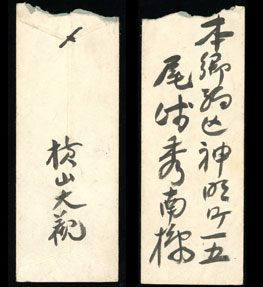 本郷區神明町一五
尾崎秀南様
〆
横山大観